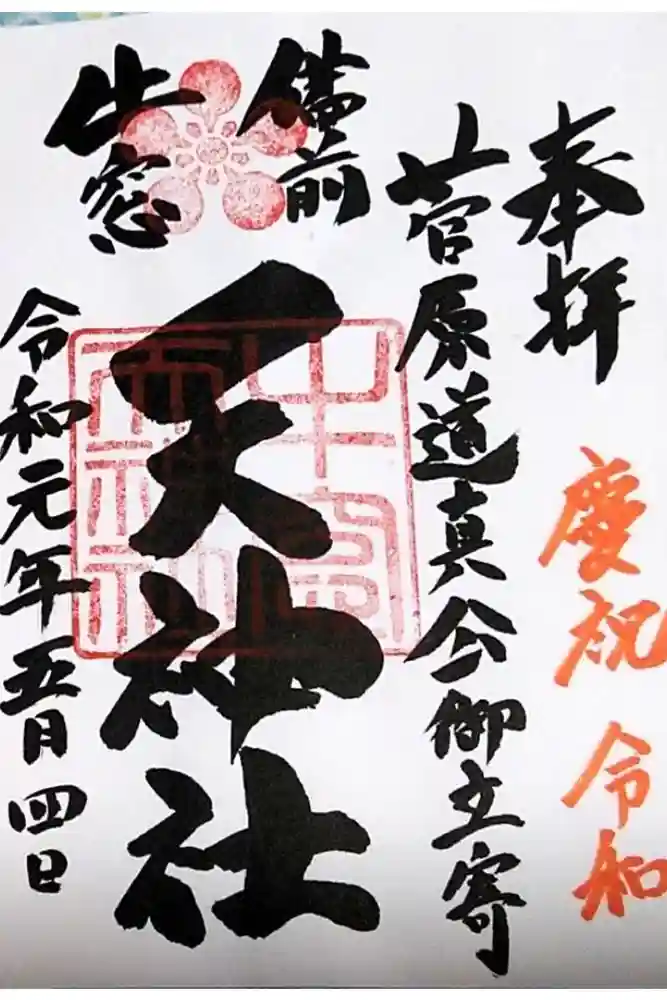 奉拝
慶祝 令和
菅原道真公御立寄
備前
牛窓
天神社
令和元年五月四日